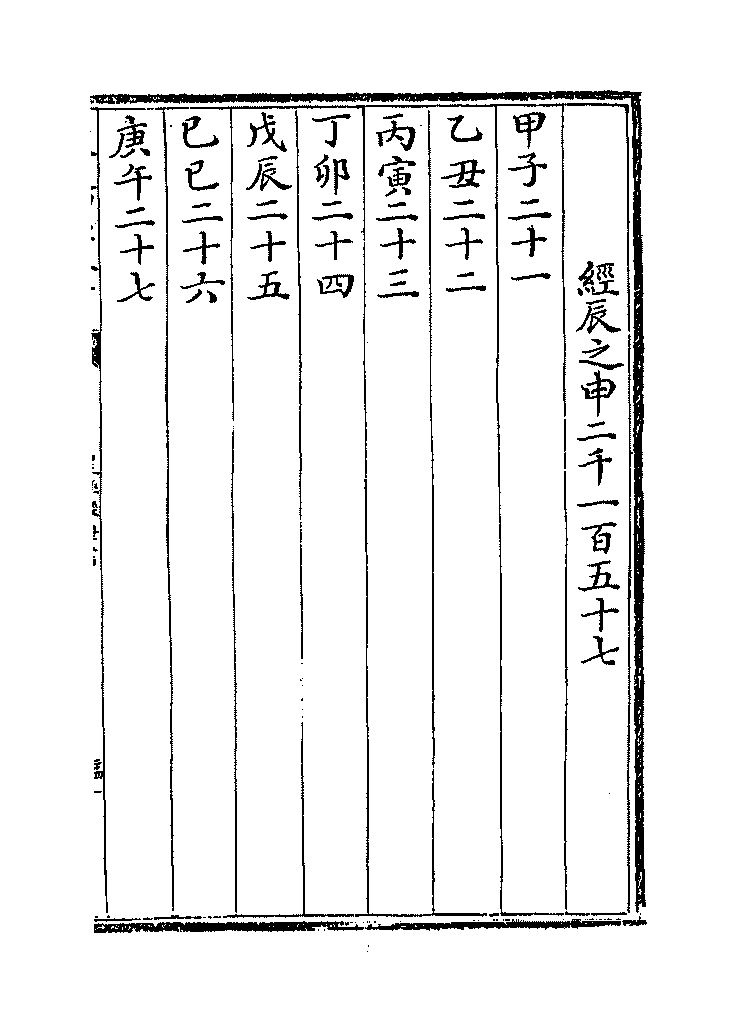 經辰之申二千一百五十七
甲子二十一
乙丑二十二
丙寅二十三
丁卯二十四
戊辰二十五
己巳二十六
庚午二十七